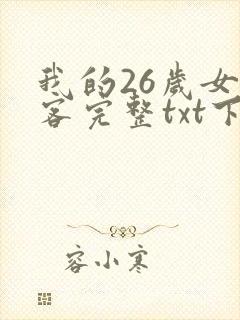 我的26歲女
客完整txt下
容小寒